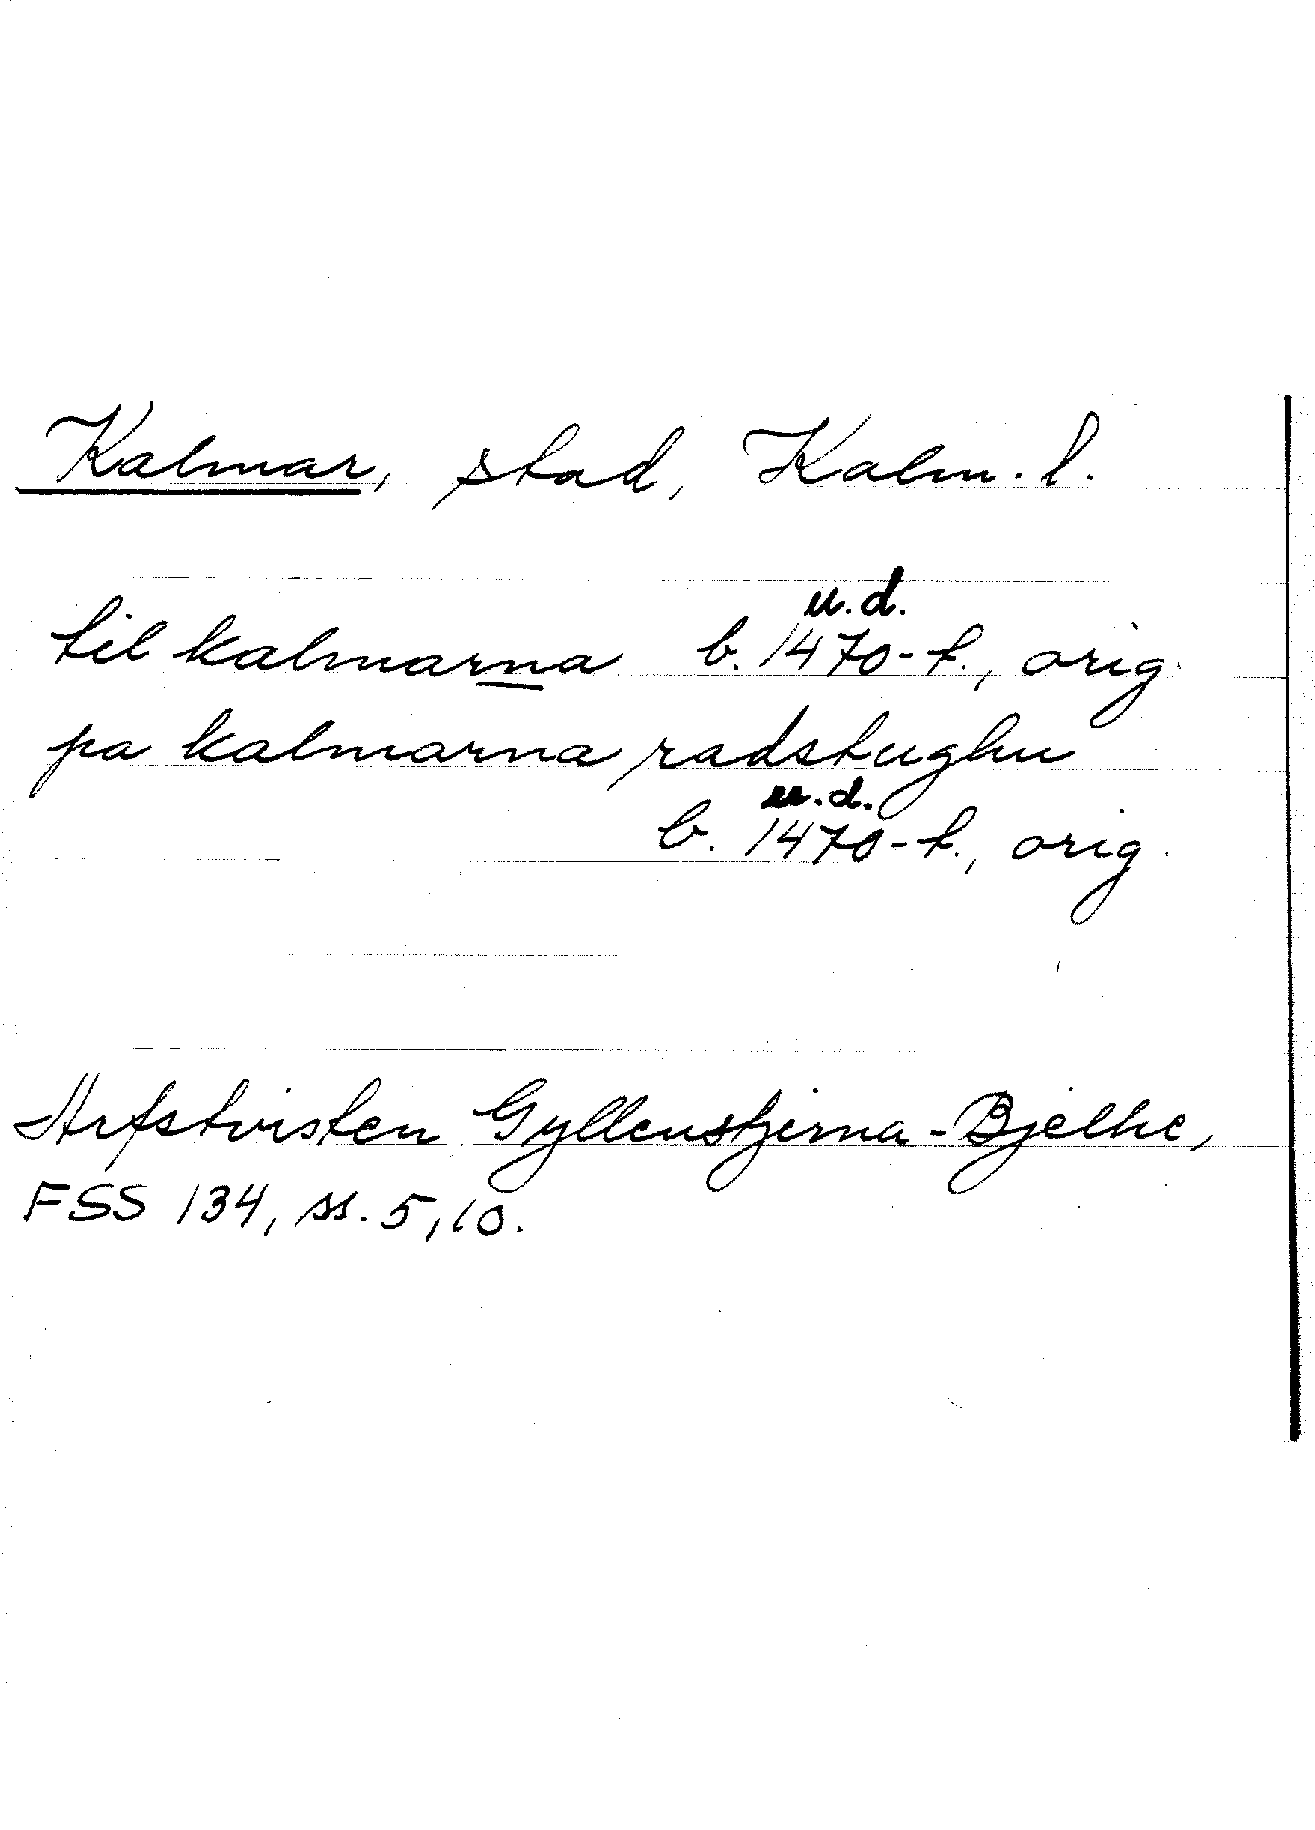 Kalmar, stad, Kalm. l.
u.d.
til kalmarna b. 1470-t., orig.
pa kalmarna radstughu
u.d.
b. 1470-t., orig.
Arfstvisten Gyllenstjerna-Bjelke,
FSS 134, ss. 5, 10.